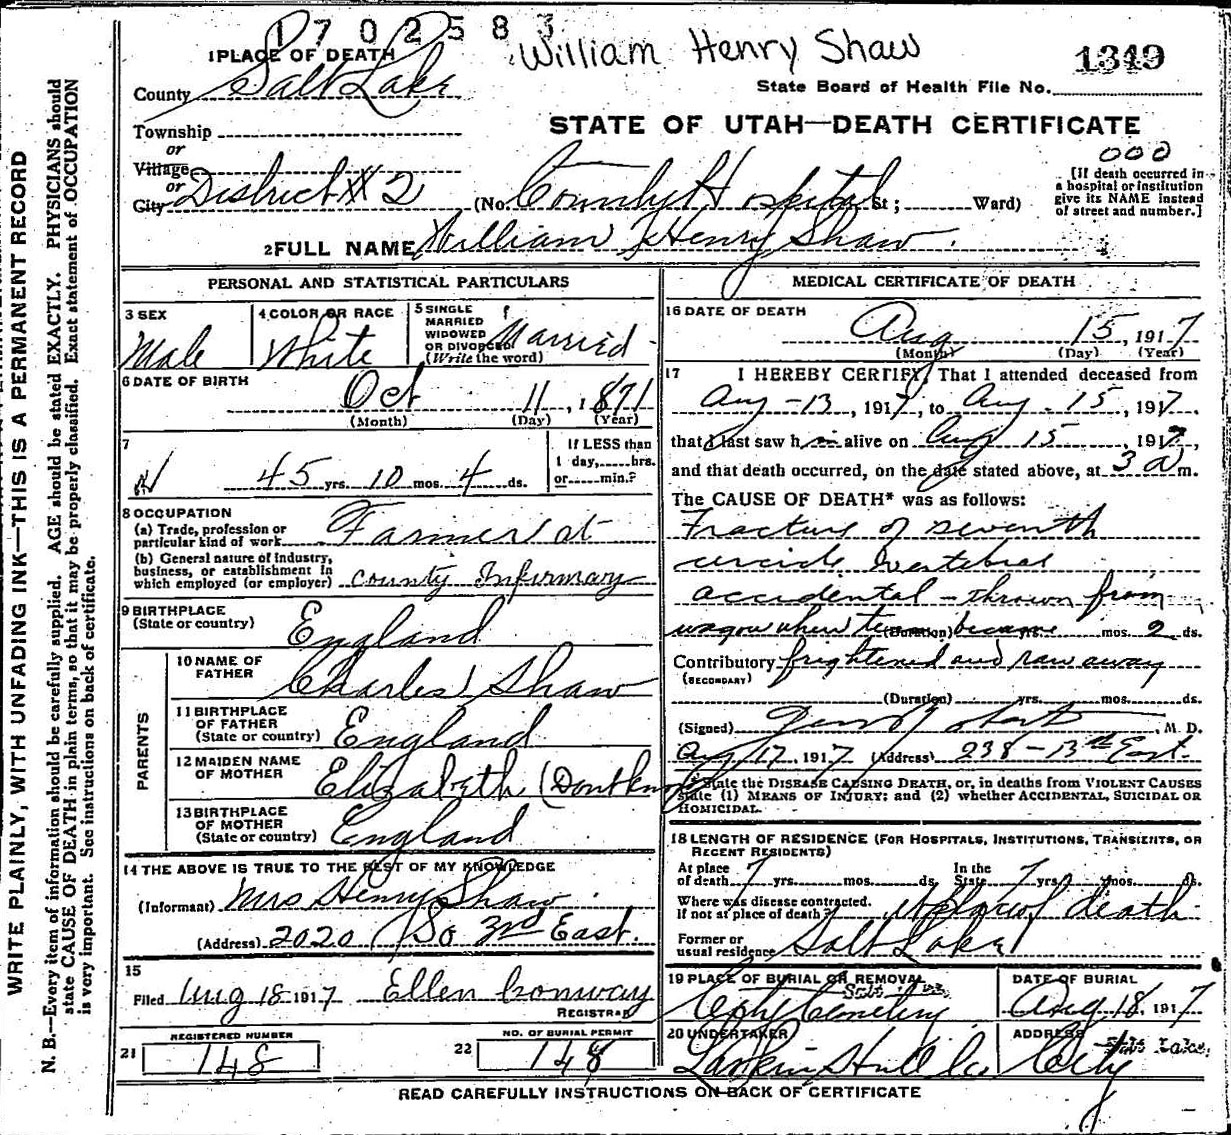 1702583
William Henry Shaw
1349
1 PLACE OF DEATH
County Salt Lake
State Board of Health File No.
STATE OF UTAH—DEATH CERTIFICATE
Township
or
Village
or
City District #2
(No. County Hospital St; Ward)
000
[If death occurred in a hospital or institution give its NAME instead of street and number.]
2 FULL NAME William Henry Shaw
PERSONAL AND STATISTICAL PARTICULARS
3 SEX
Male
4 COLOR OR RACE
White
5 SINGLE
MARRIED
WIDOWED
OR DIVORCED
(Write the word)
Married
6 DATE OF BIRTH
Oct 11, 1871
(Month) (Day) (Year)
7
45 yrs. 10 mos. 4 ds.
If LESS than
1 day, hrs.
or min.?
8 OCCUPATION
(a) Trade, profession or
particular kind of work Farmer at
(b) General nature of industry,
business, or establishment in
which employed (or employer) County Infirmary
9 BIRTHPLACE
(State or country) England
PARENTS
10 NAME OF
FATHER Charles Shaw
11 BIRTHPLACE
OF FATHER
(State or country) England
12 MAIDEN NAME
OF MOTHER Elizabeth (Dont know
13 BIRTHPLACE
OF MOTHER
(State or country) England
14 THE ABOVE IS TRUE TO THE BEST OF MY KNOWLEDGE
(Informant) Mrs Henry Shaw
(Address) 2020 So 3rd East.
15
Filed Aug 18 1917 Ellen Conway
REGISTRAR
REGISTERED NUMBER
21 148
NO. OF BURIAL PERMIT
22 148
MEDICAL CERTIFICATE OF DEATH
16 DATE OF DEATH
Aug 15, 1917
(Month) (Day) (Year)
17 I HEREBY CERTIFY, That I attended deceased from
Aug-13, 1917, to Aug. 15, 1917.
that I last saw h im alive on Aug 15, 1917,
and that death occurred, on the date stated above, at 3 a m.
The CAUSE OF DEATH* was as follows:
Fracture of seventh
vertebrae
accidental - thrown from
wagon when team became (Duration) yrs. mos. 2 ds.
Contributory frightened and ran away
(SECONDARY)
(Duration) yrs. mos. ds.
(Signed) M. D.
Aug 17, 1917 (Address) 238-13th East.
*State the DISEASE CAUSING DEATH, or, in deaths from VIOLENT CAUSES
state (1) MEANS OF INJURY; and (2) whether ACCIDENTAL, SUICIDAL OR
HOMICIDAL.
18 LENGTH OF RESIDENCE (FOR HOSPITALS, INSTITUTIONS, TRANSIENTS, OR
RECENT RESIDENTS)
At place of death 7 yrs. mos. ds. In the State 7 yrs. mos. ds.
Where was disease contracted,
if not at place of death? place of death
Former or
usual residence Salt Lake
19 PLACE OF BURIAL OR REMOVAL
City Cemetery
DATE OF BURIAL
Aug 18, 1917
20 UNDERTAKER
Larkin Hull Co
ADDRESS
Salt Lake
City
READ CAREFULLY INSTRUCTIONS ON BACK OF CERTIFICATE
WRITE PLAINLY, WITH UNFADING INK—THIS IS A PERMANENT RECORD
N. B.—Every item of information should be carefully supplied. AGE should be stated EXACTLY. PHYSICIANS should
state CAUSE OF DEATH in plain terms, so that it may be properly classified. Exact statement of OCCUPATION
is very important. See instructions on back of certificate.